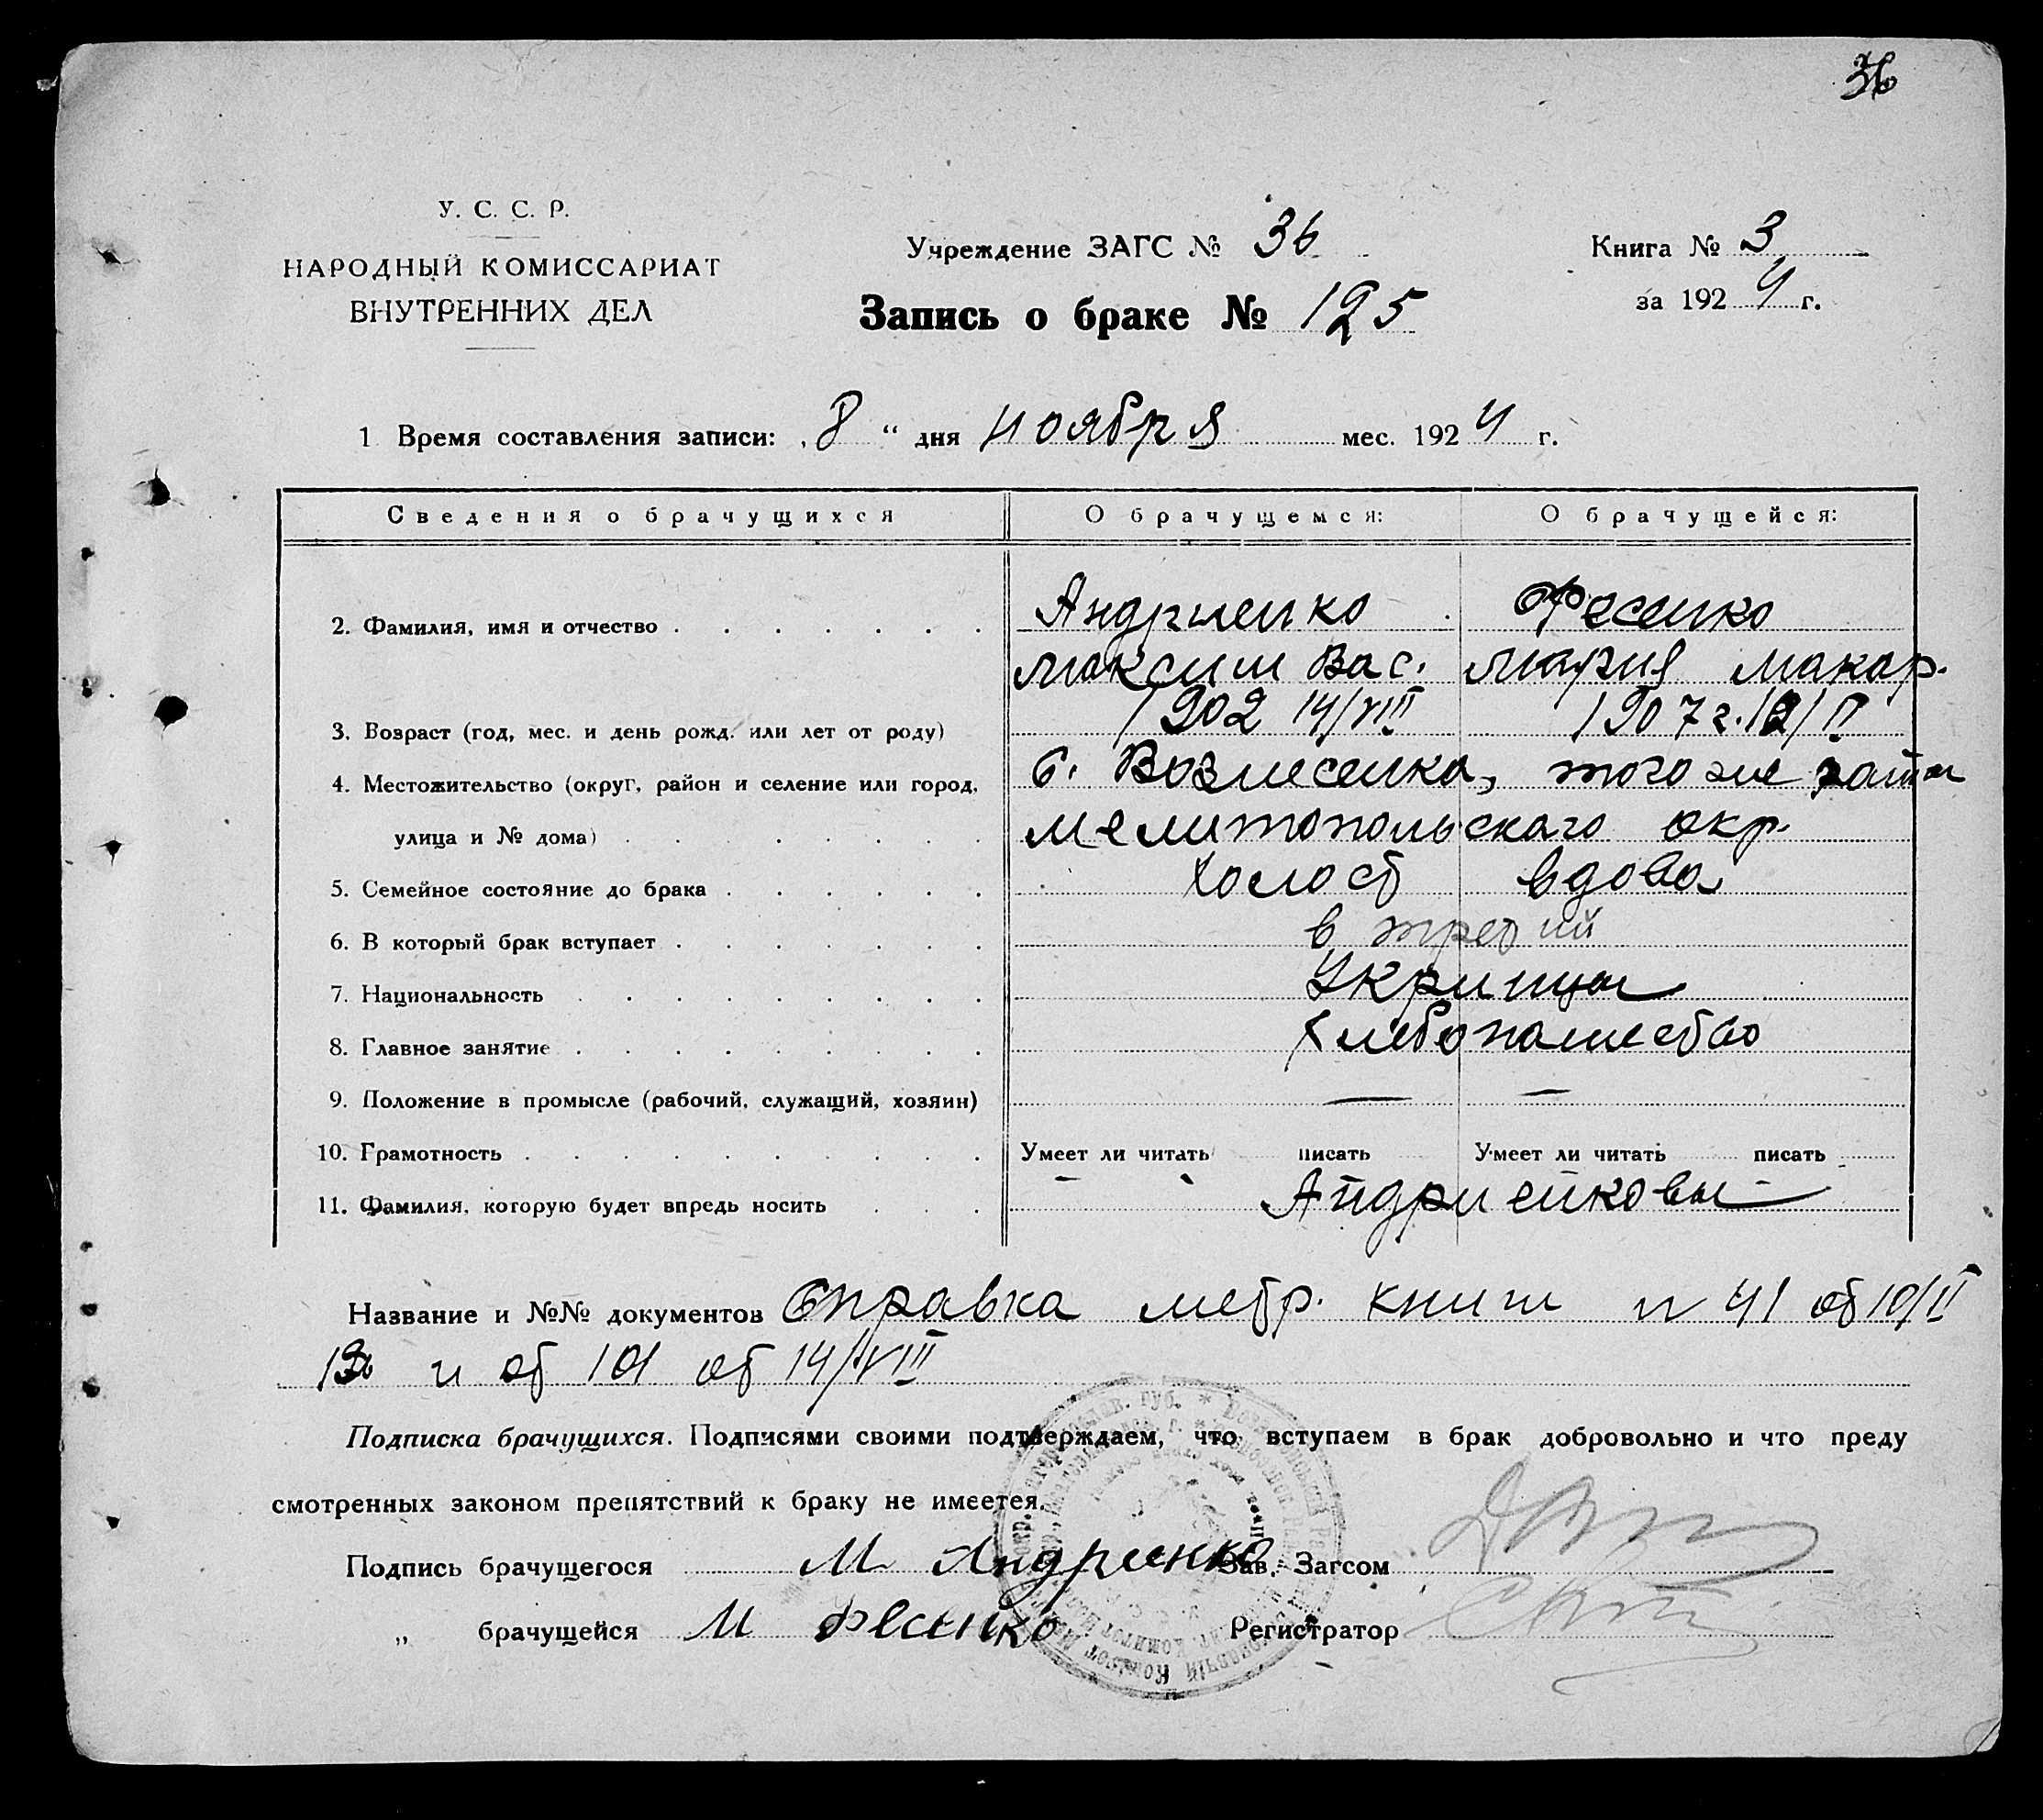 36
У. С. С. Р.
НАРОДНЫЙ КОМИССАРИАТ
ВНУТРЕННИХ ДЕЛ
Учреждение ЗАГС № 36
Запись о браке № 125
Книга № 3
за 1924 г.
1 Время составления записи: „8“ дня ноября мес. 1924 г.
Сведения о брачущихся О брачущемся: О брачущейся:
2. Фамилия, имя и отчество Андриенко Фесенко
Максим Вас. Мария Макар.
3. Возраст (год, мес. и день рожд. или лет от роду) 1902 14/VIII 1907 г.
4. Местожительство (округ, район и селение или город, с. Вознесенка, того же
улица и № дома) Мелитопольского окр.
5. Семейное состояние до брака холост вдова
6. В который брак вступает в третий
7. Национальность Укринцы
8. Главное занятие Хлебопашество
9. Положение в промысле (рабочий, служащий, хозяин) — —
10. Грамотность Умеет ли читать писать Умеет ли читать писать
11. Фамилия, которую будет впредь носить Андриенковы
Название и №№ документов Справка метр. книги 41 от 10/II
и от 101 от 14/VIII
Подписка брачущихся. Подписями своими подтверждаем, что вступаем в брак добровольно и что преду
смотренных законом препятствий к браку не имеется.
Подпись брачущегося М Андриенко Зав. Загсом
„ брачущейся М Фесенко Регистратор